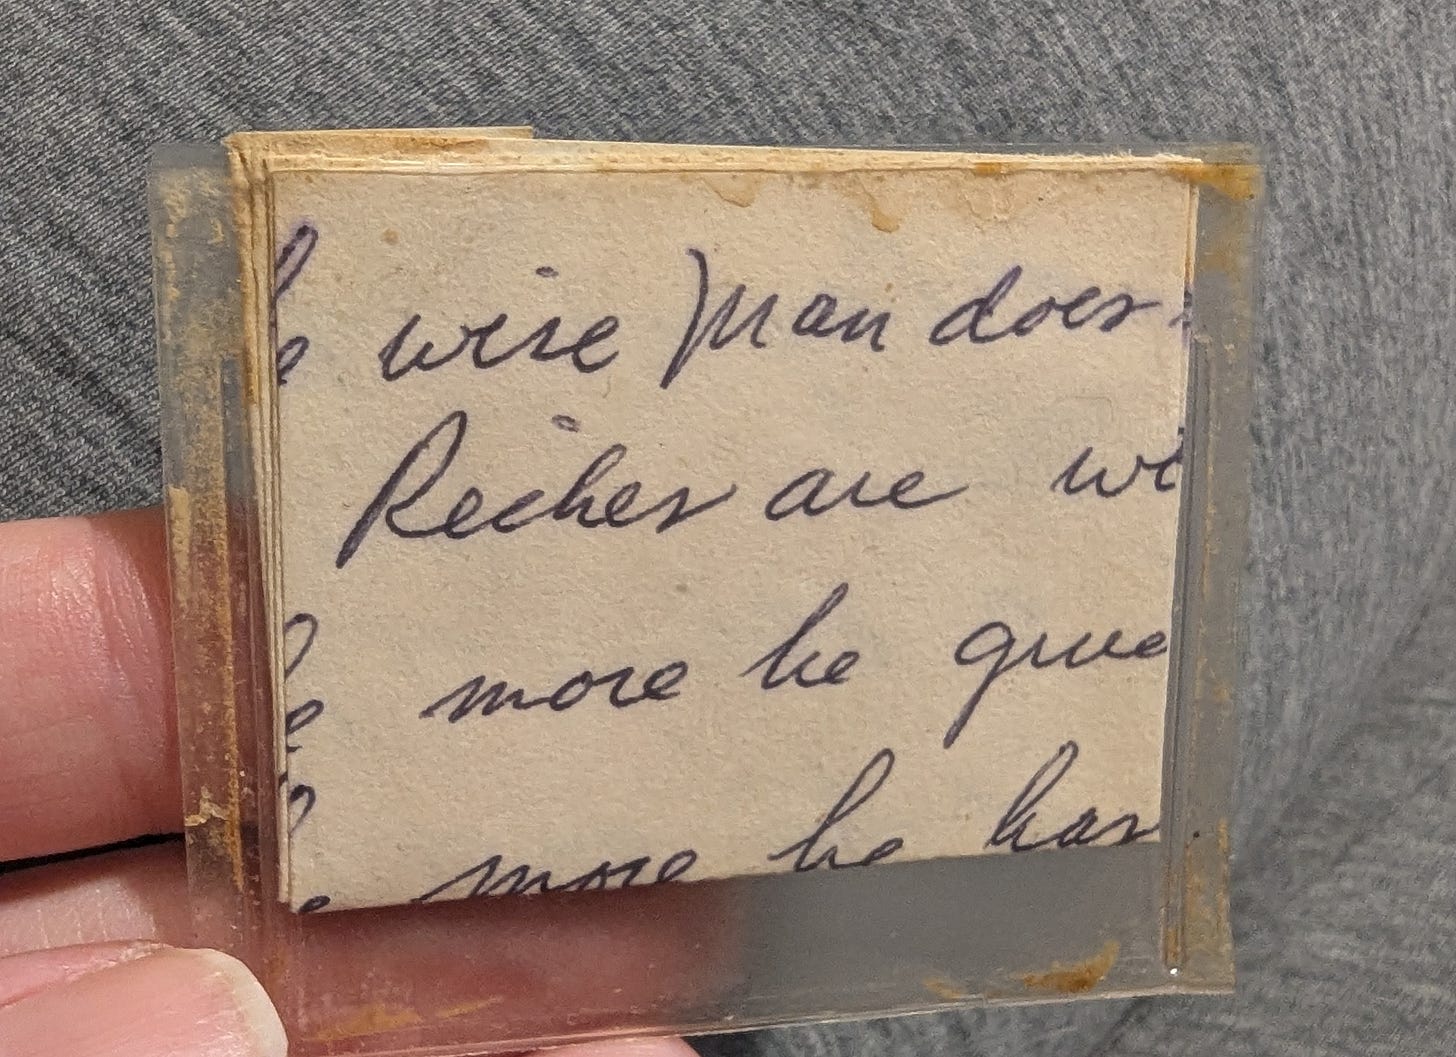 e wise man does
Riches are wi
e more he give
e more he has